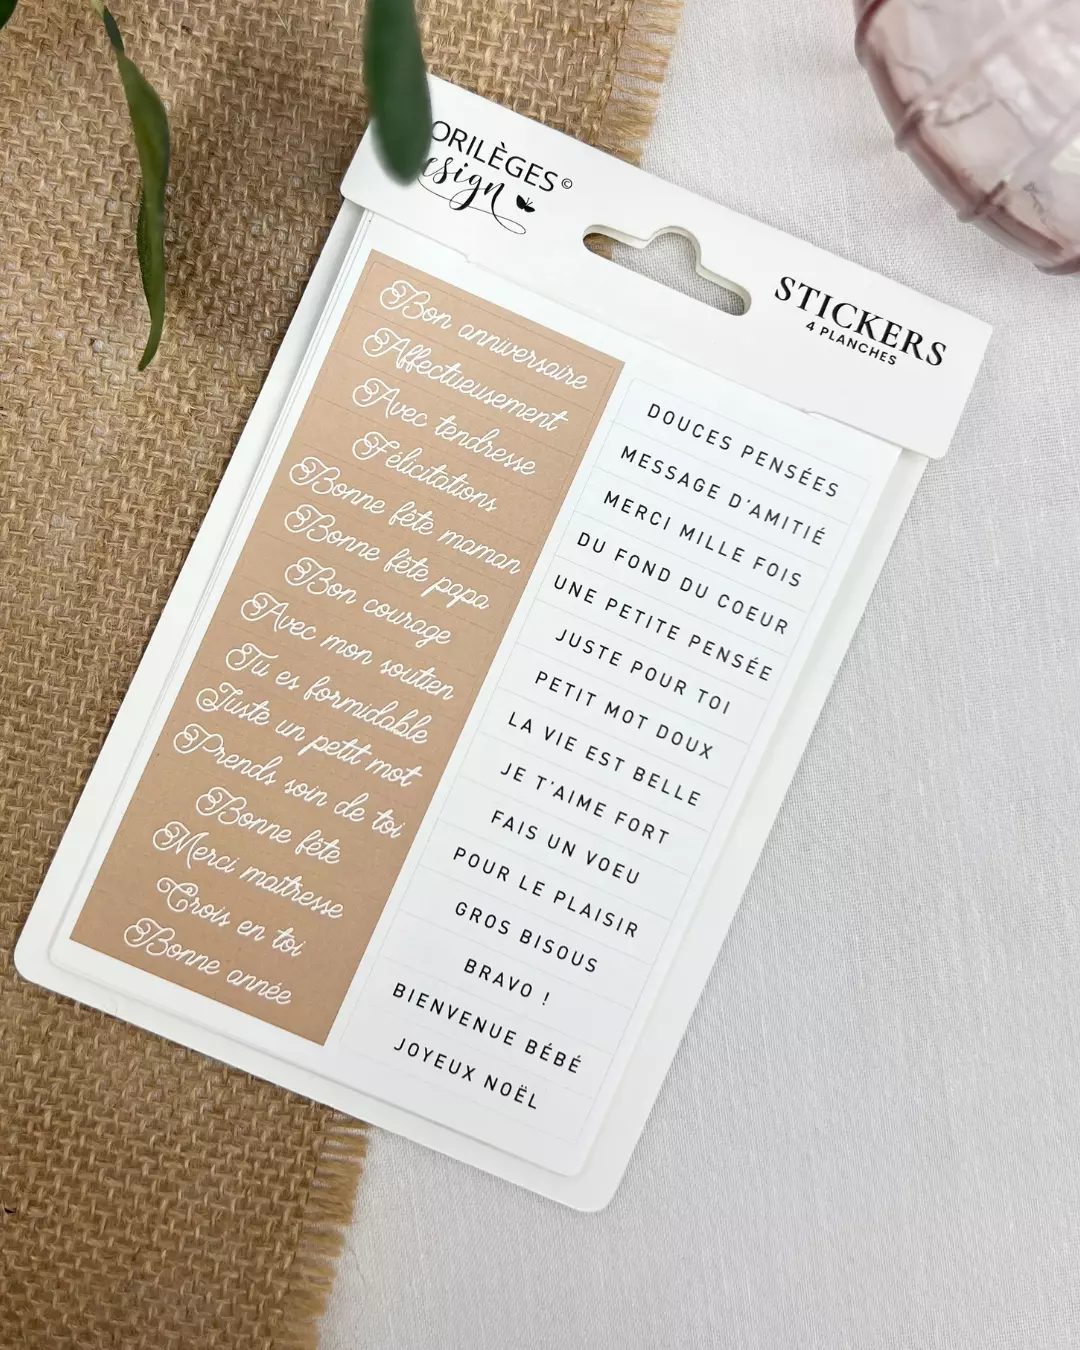 ORILÈGES©
esign
STICKERS
4 PLANCHES
Bon anniversaire
Affectueusement
Avec tendresse
Félicitations
Bonne fête maman
Bonne fête papa
Bon courage
Avec mon soutien
Tu es formidable
Juste un petit mot
Prends soin de toi
Bonne fête
Merci maîtresse
Crois en toi
Bonne année
DOUCES PENSÉES
MESSAGE D'AMITIÉ
MERCI MILLE FOIS
DU FOND DU COEUR
UNE PETITE PENSÉE
JUSTE POUR TOI
PETIT MOT DOUX
LA VIE EST BELLE
JE T'AIME FORT
FAIS UN VOEU
POUR LE PLAISIR
GROS BISOUS
BRAVO !
BIENVENUE BÉBÉ
JOYEUX NOËL